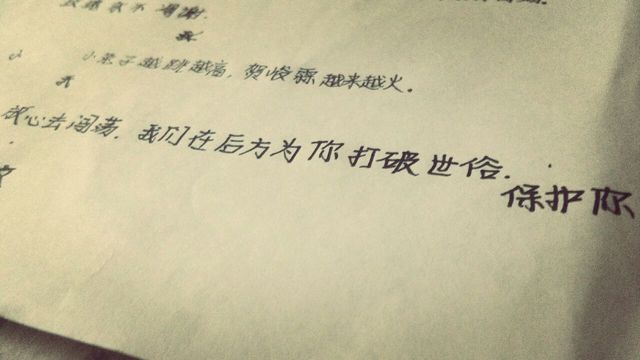 永不凋谢.
小
小果子越跳越高,贺俊霖越来越火.
放心去闯荡,我们在后方为你打破世俗.
保护你